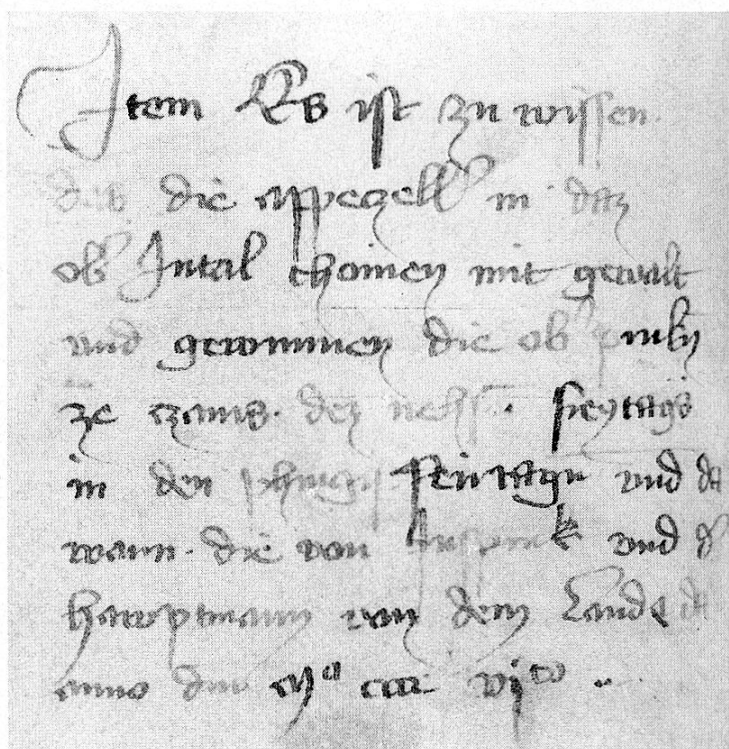 Item Es ist zu wissen.
das die appezell' in daz
ob' Intal chomen mit gewalt
und gewunnen die ob' prukn
ze czams. dez nehst. freytags
in den phingst feirtagn und da
wann. die von Insprukk und d'
hawptmann von dem Lande da
anno dm Mº cccc vjto ..